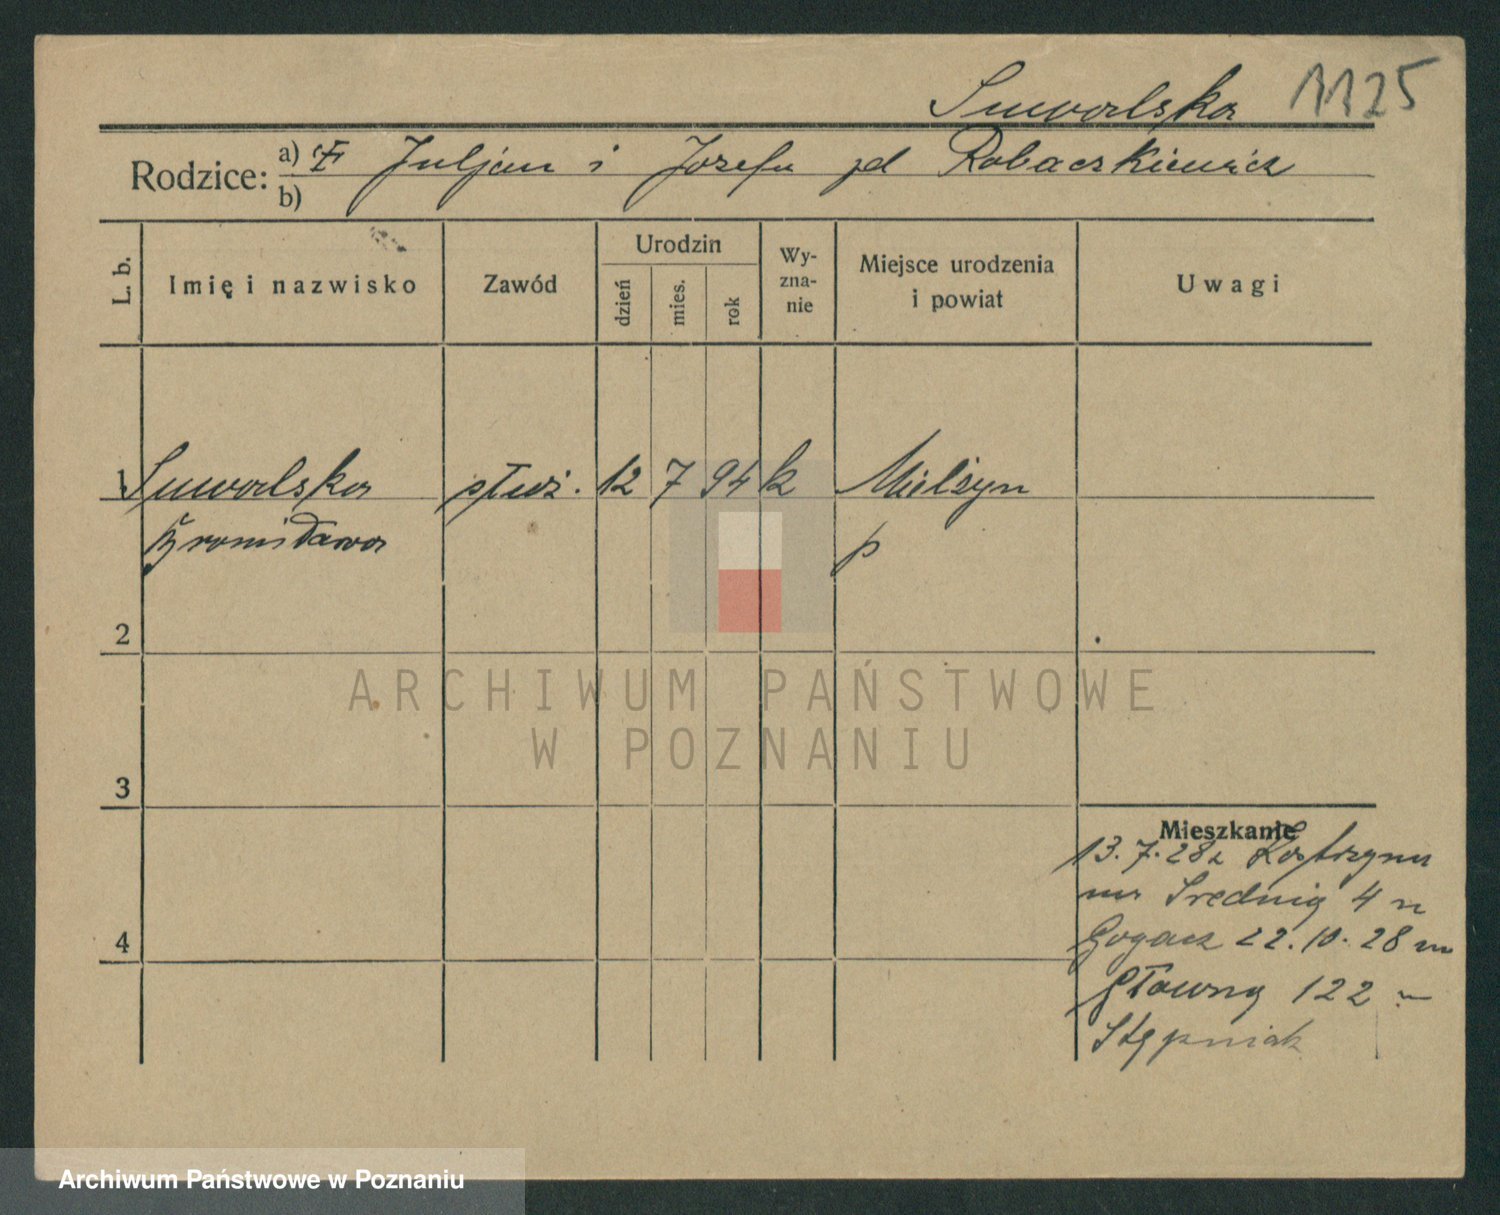 Suwalska 1125
Rodzice: a) Juljan i Jozefa zd Robaczkiewicz
b)
L. b. Imię i nazwisko Zawód Urodzin dzień mies. rok Wy-zna-nie Miejsce urodzenia i powiat Uwagi
1 Suwalska służ. 12 7 94 k Mielżyn
Bronisława p
2
3
Mieszkanie
13.7.28 z Kostrzyna
na Średnią 4 u
4 Gogacz 22.10.28 na
Główną 122 u
Stępniak
ARCHIWUM PAŃSTWOWE
W POZNANIU
Archiwum Państwowe w Poznaniu